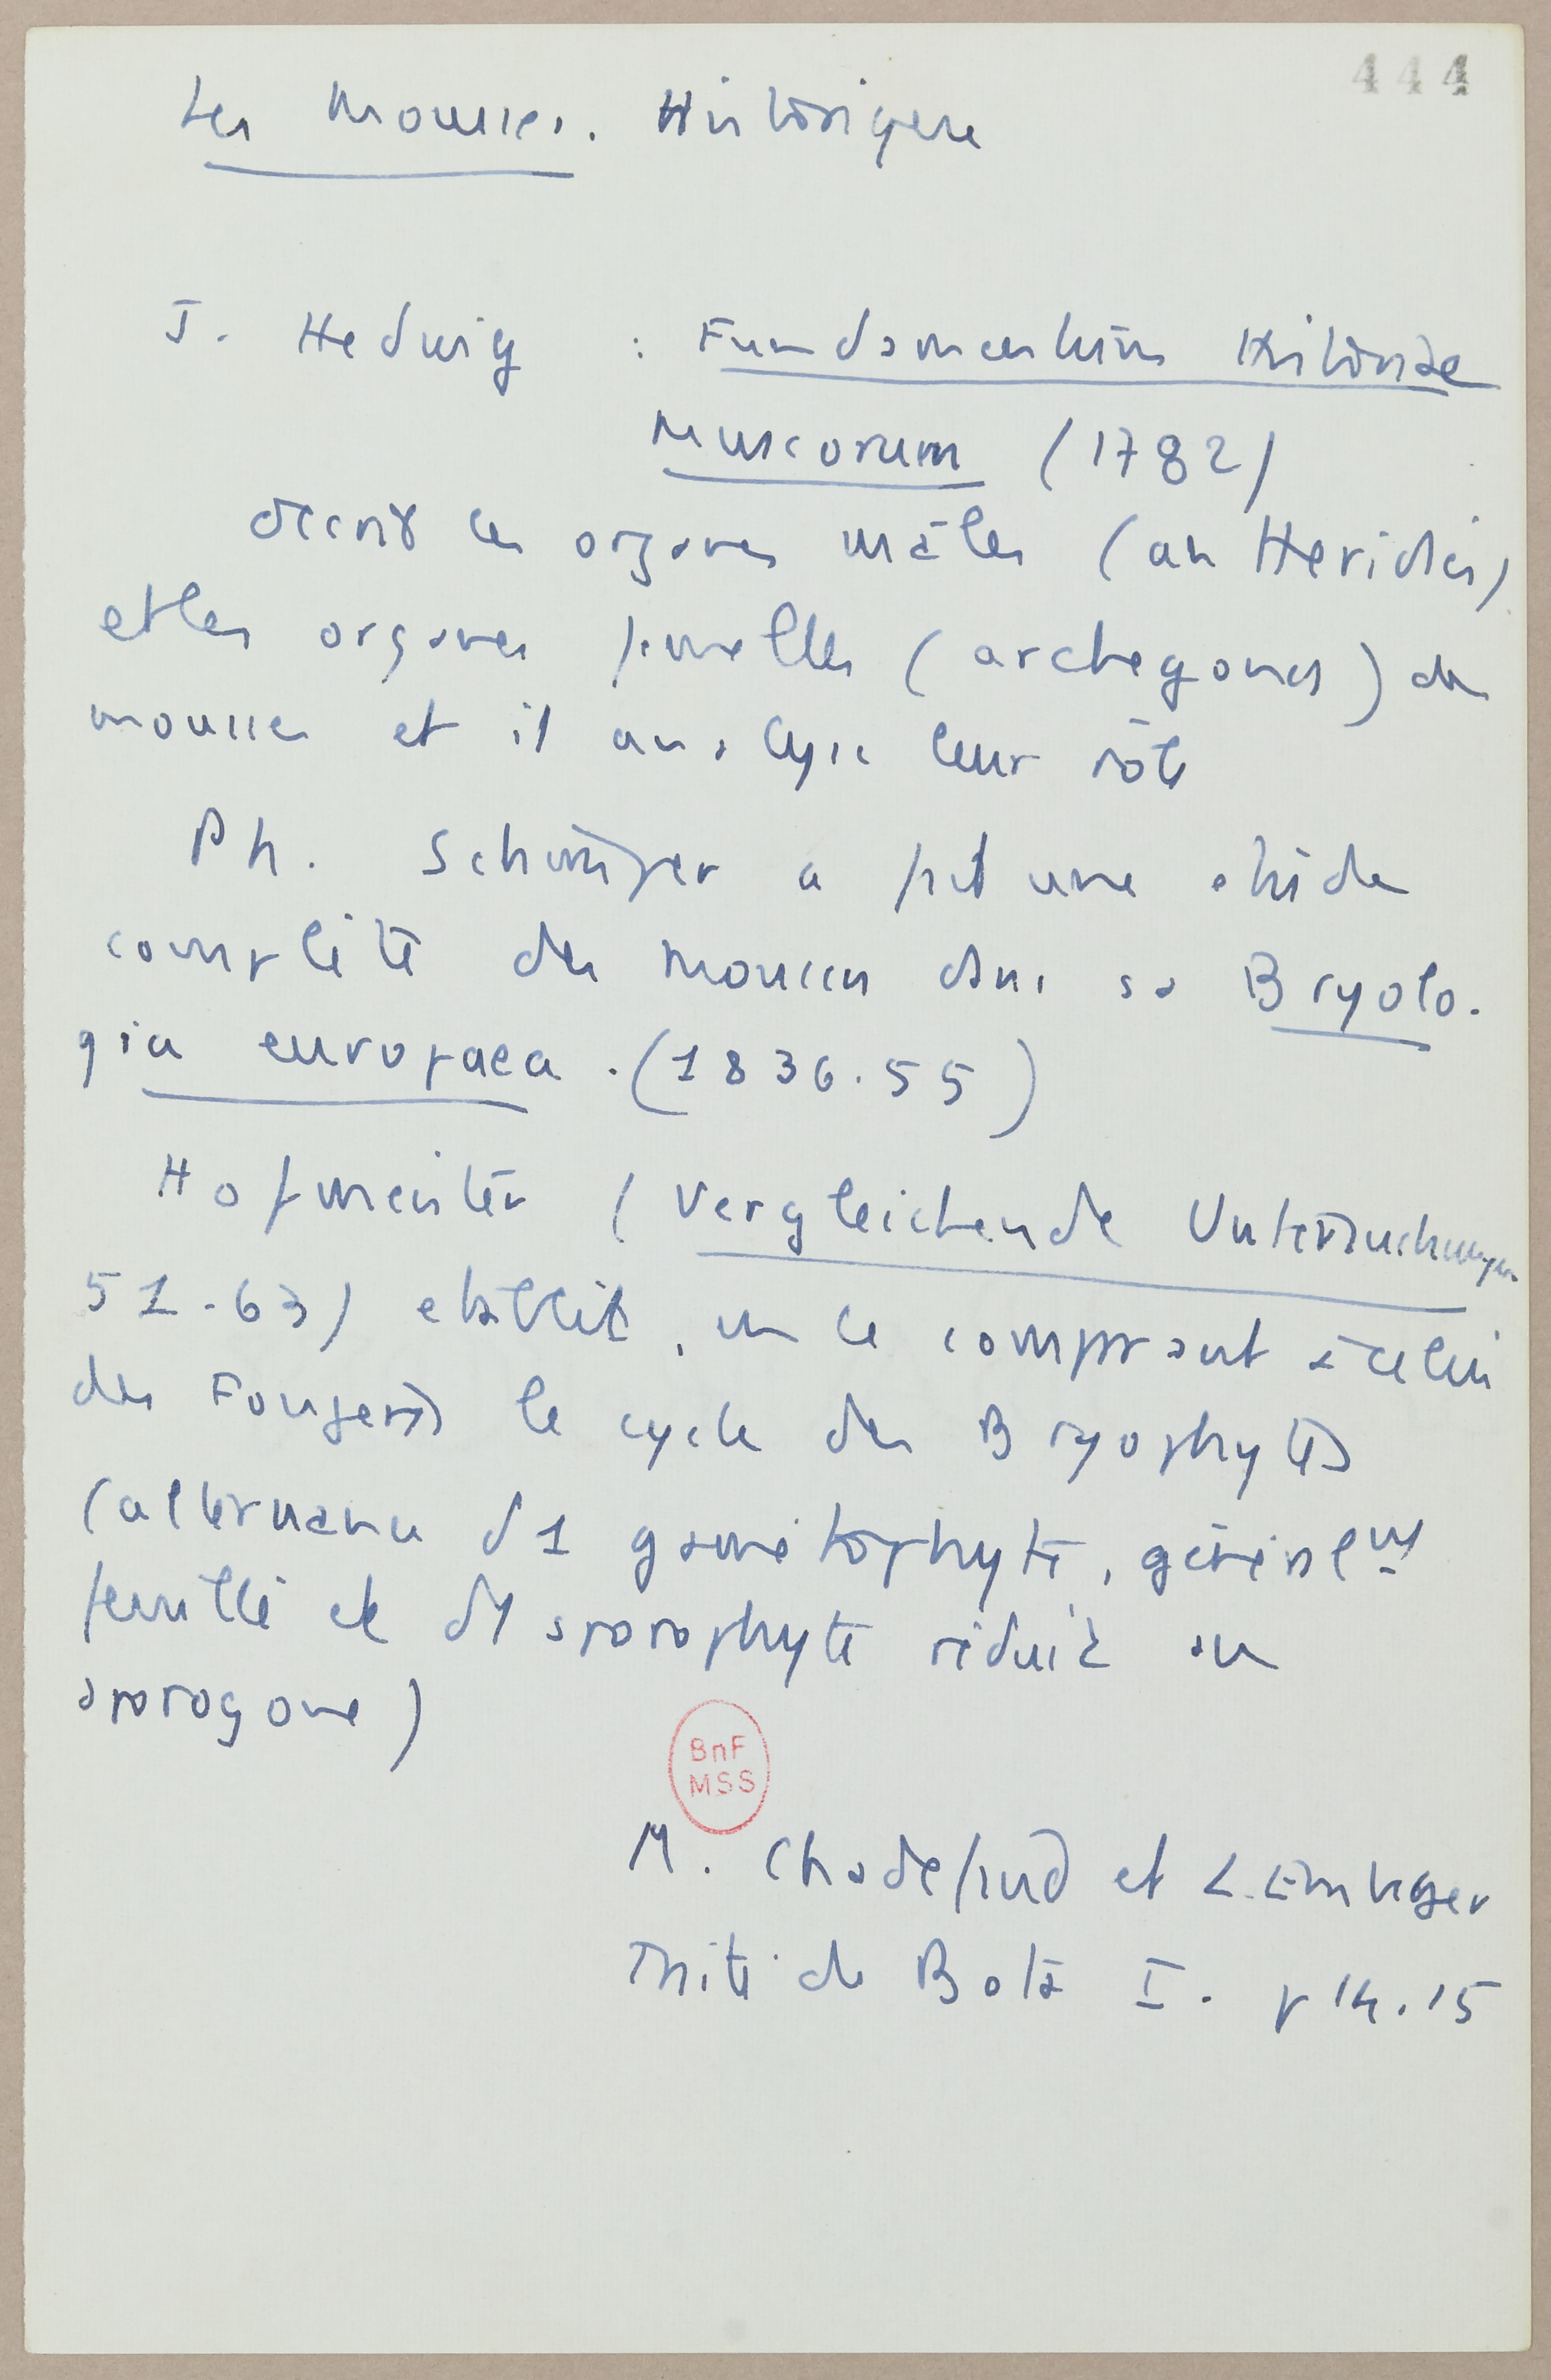 444
Les Mousses. Historique
J. Hedwig : Fundamentum Historiae
Muscorum (1782)
décrit les organes mâles (antheridies)
et les organes femelles (archegones) des
mousses et il analyse leur rôle
Ph. Schimper a fait une étude
complète des mousses dans sa Bryolo-
gia europaea. (1836.55)
Hofmeister (Vergleichende Untersuchungen
51-63) établit, en le comparant à celui
des Fougères le cycle des Bryophytes
(alternance d'1 gamétophyte, général.nt
feuillé et d'1 sporophyte réduit au
sporogone)
BnF
MSS
M. Chadefaud et L. Emberger
Traité de Bota I. p 14.15